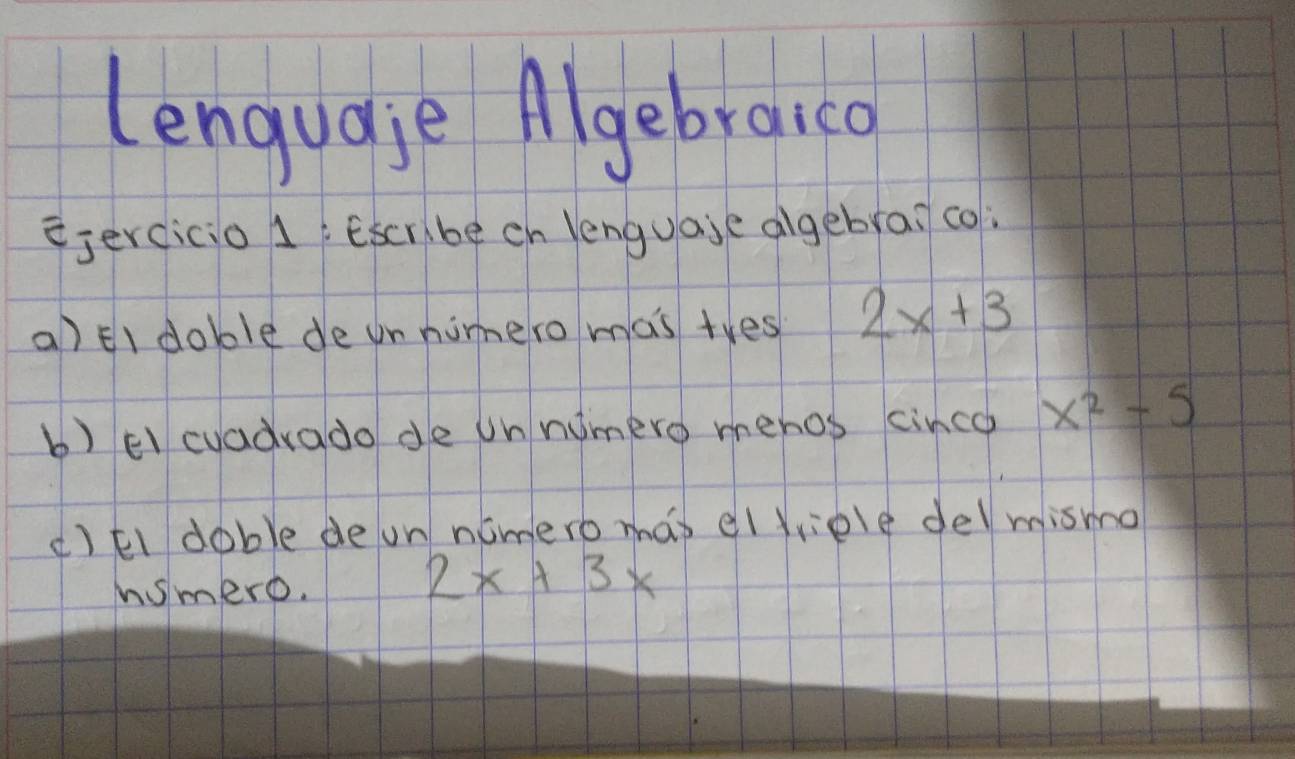 Lenguaje Algebraico
Ejercicio 1: Escribe en lenguaje algebraico:
a) El doble de un número más tres 2x+3
b) El cuadrado de un número menos cinco x² - 5
c) El doble de un número más el triple del mismo
número. 2x + 3x